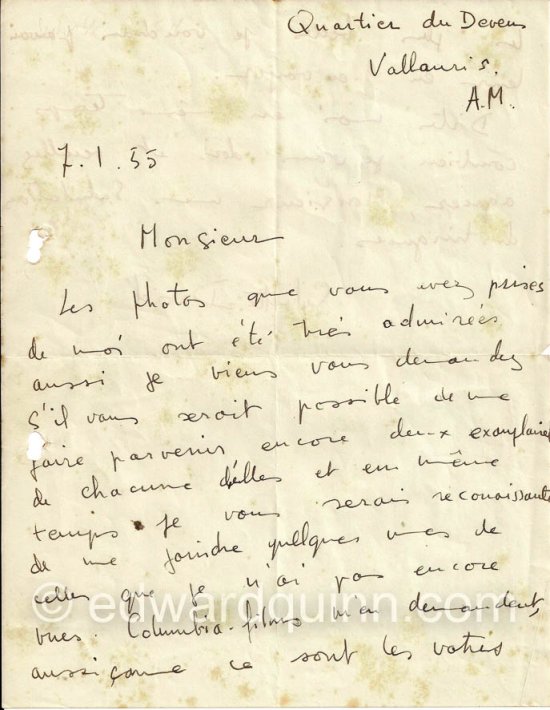 Quartier du Devens
Vallauris.
A.M.
7.1.55
Monsieur
Les photos que vous avez prises
de moi ont été très admirées
aussi je viens vous demander
s'il vous serait possible de me
faire parvenir encore deux exemplaires
de chacune d'elles et en même
temps je vous serais reconaissante
de me joindre quelques unes de
celles que je n'ai pas encore
vues. Columbia-films m'en demandent,
aussi comme ce sont les votres
© edwardquinn.com